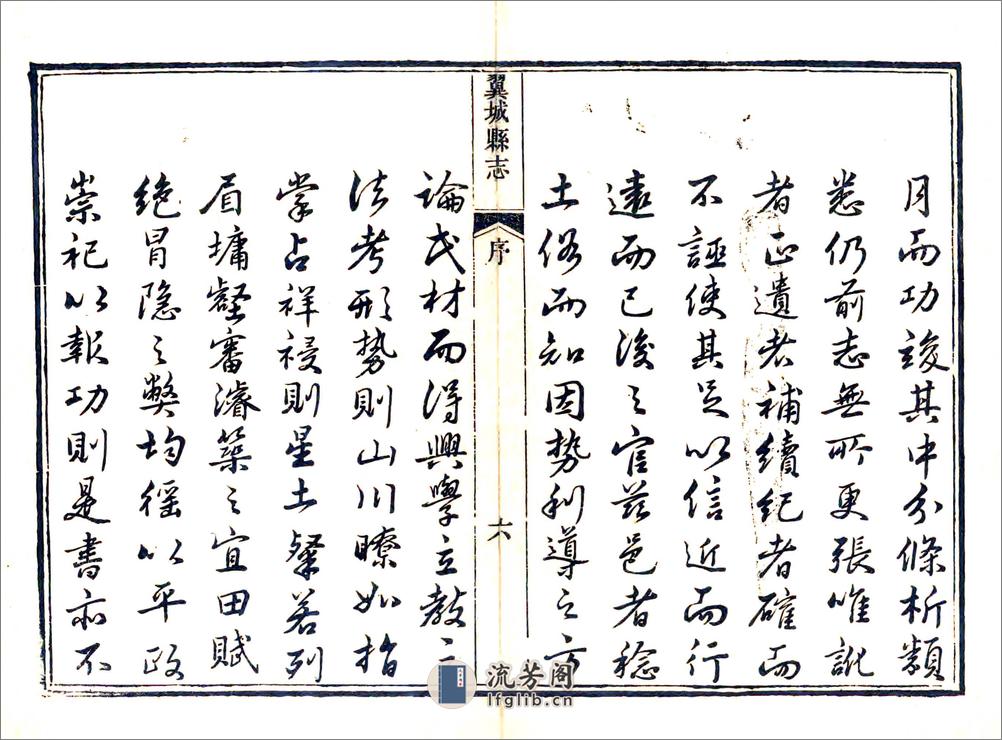 月而功竣其中分條析類
悉仍前志無所更張唯訛
者正遺者補續紀者確而
不誣使其足以信近而行
遠而已後之官茲邑者稔
土俗而知因勢利導之方
翼城縣志
序
六
論民材而得興學立教之
法考形勢則山川瞭如指
掌占祥祲則星土粲若列
眉墉壑審濬築之宜田賦
絕冒隐之弊均徭以平政
崇祀以報功則是書亦不
流芳阁
lfglib.cn